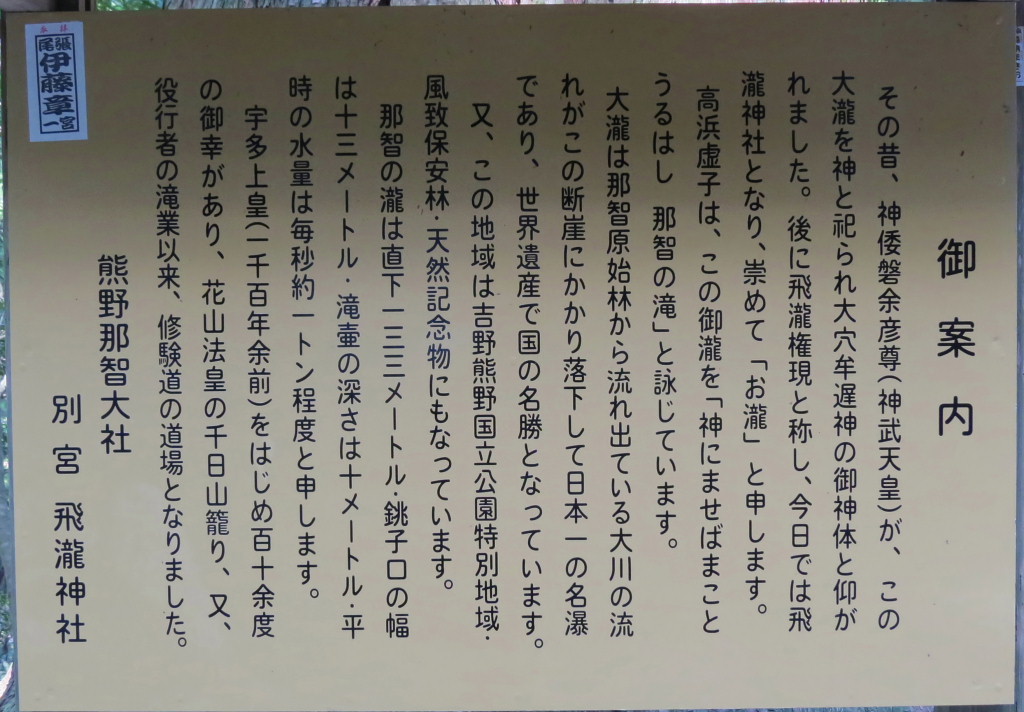 御案内
その昔、神倭磐余彦尊(神武天皇)が、この
大瀧を神と祀られ大穴牟遅神の御神体と仰が
れました。後に飛瀧権現と称し、今日では飛
瀧神社となり、崇めて「お瀧」と申します。
高浜虚子は、この御瀧を「神にませばまこと
うるはし 那智の滝」と詠じています。
大瀧は那智原始林から流れ出ている大川の流
れがこの断崖にかかり落下して日本一の名瀑
であり、世界遺産で国の名勝となっています。
又、この地域は吉野熊野国立公園特別地域・
風致保安林・天然記念物にもなっています。
那智の瀧は直下一三三メートル・銚子口の幅
は十三メートル・滝壷の深さは十メートル・平
時の水量は毎秒約一トン程度と申します。
宇多上皇(一千百年余前)をはじめ百十余度
の御幸があり、花山法皇の千日山籠り、又、
役行者の滝業以来、修験道の道場となりました。
熊野那智大社
別宮 飛瀧神社
尾張
伊藤章
一宮